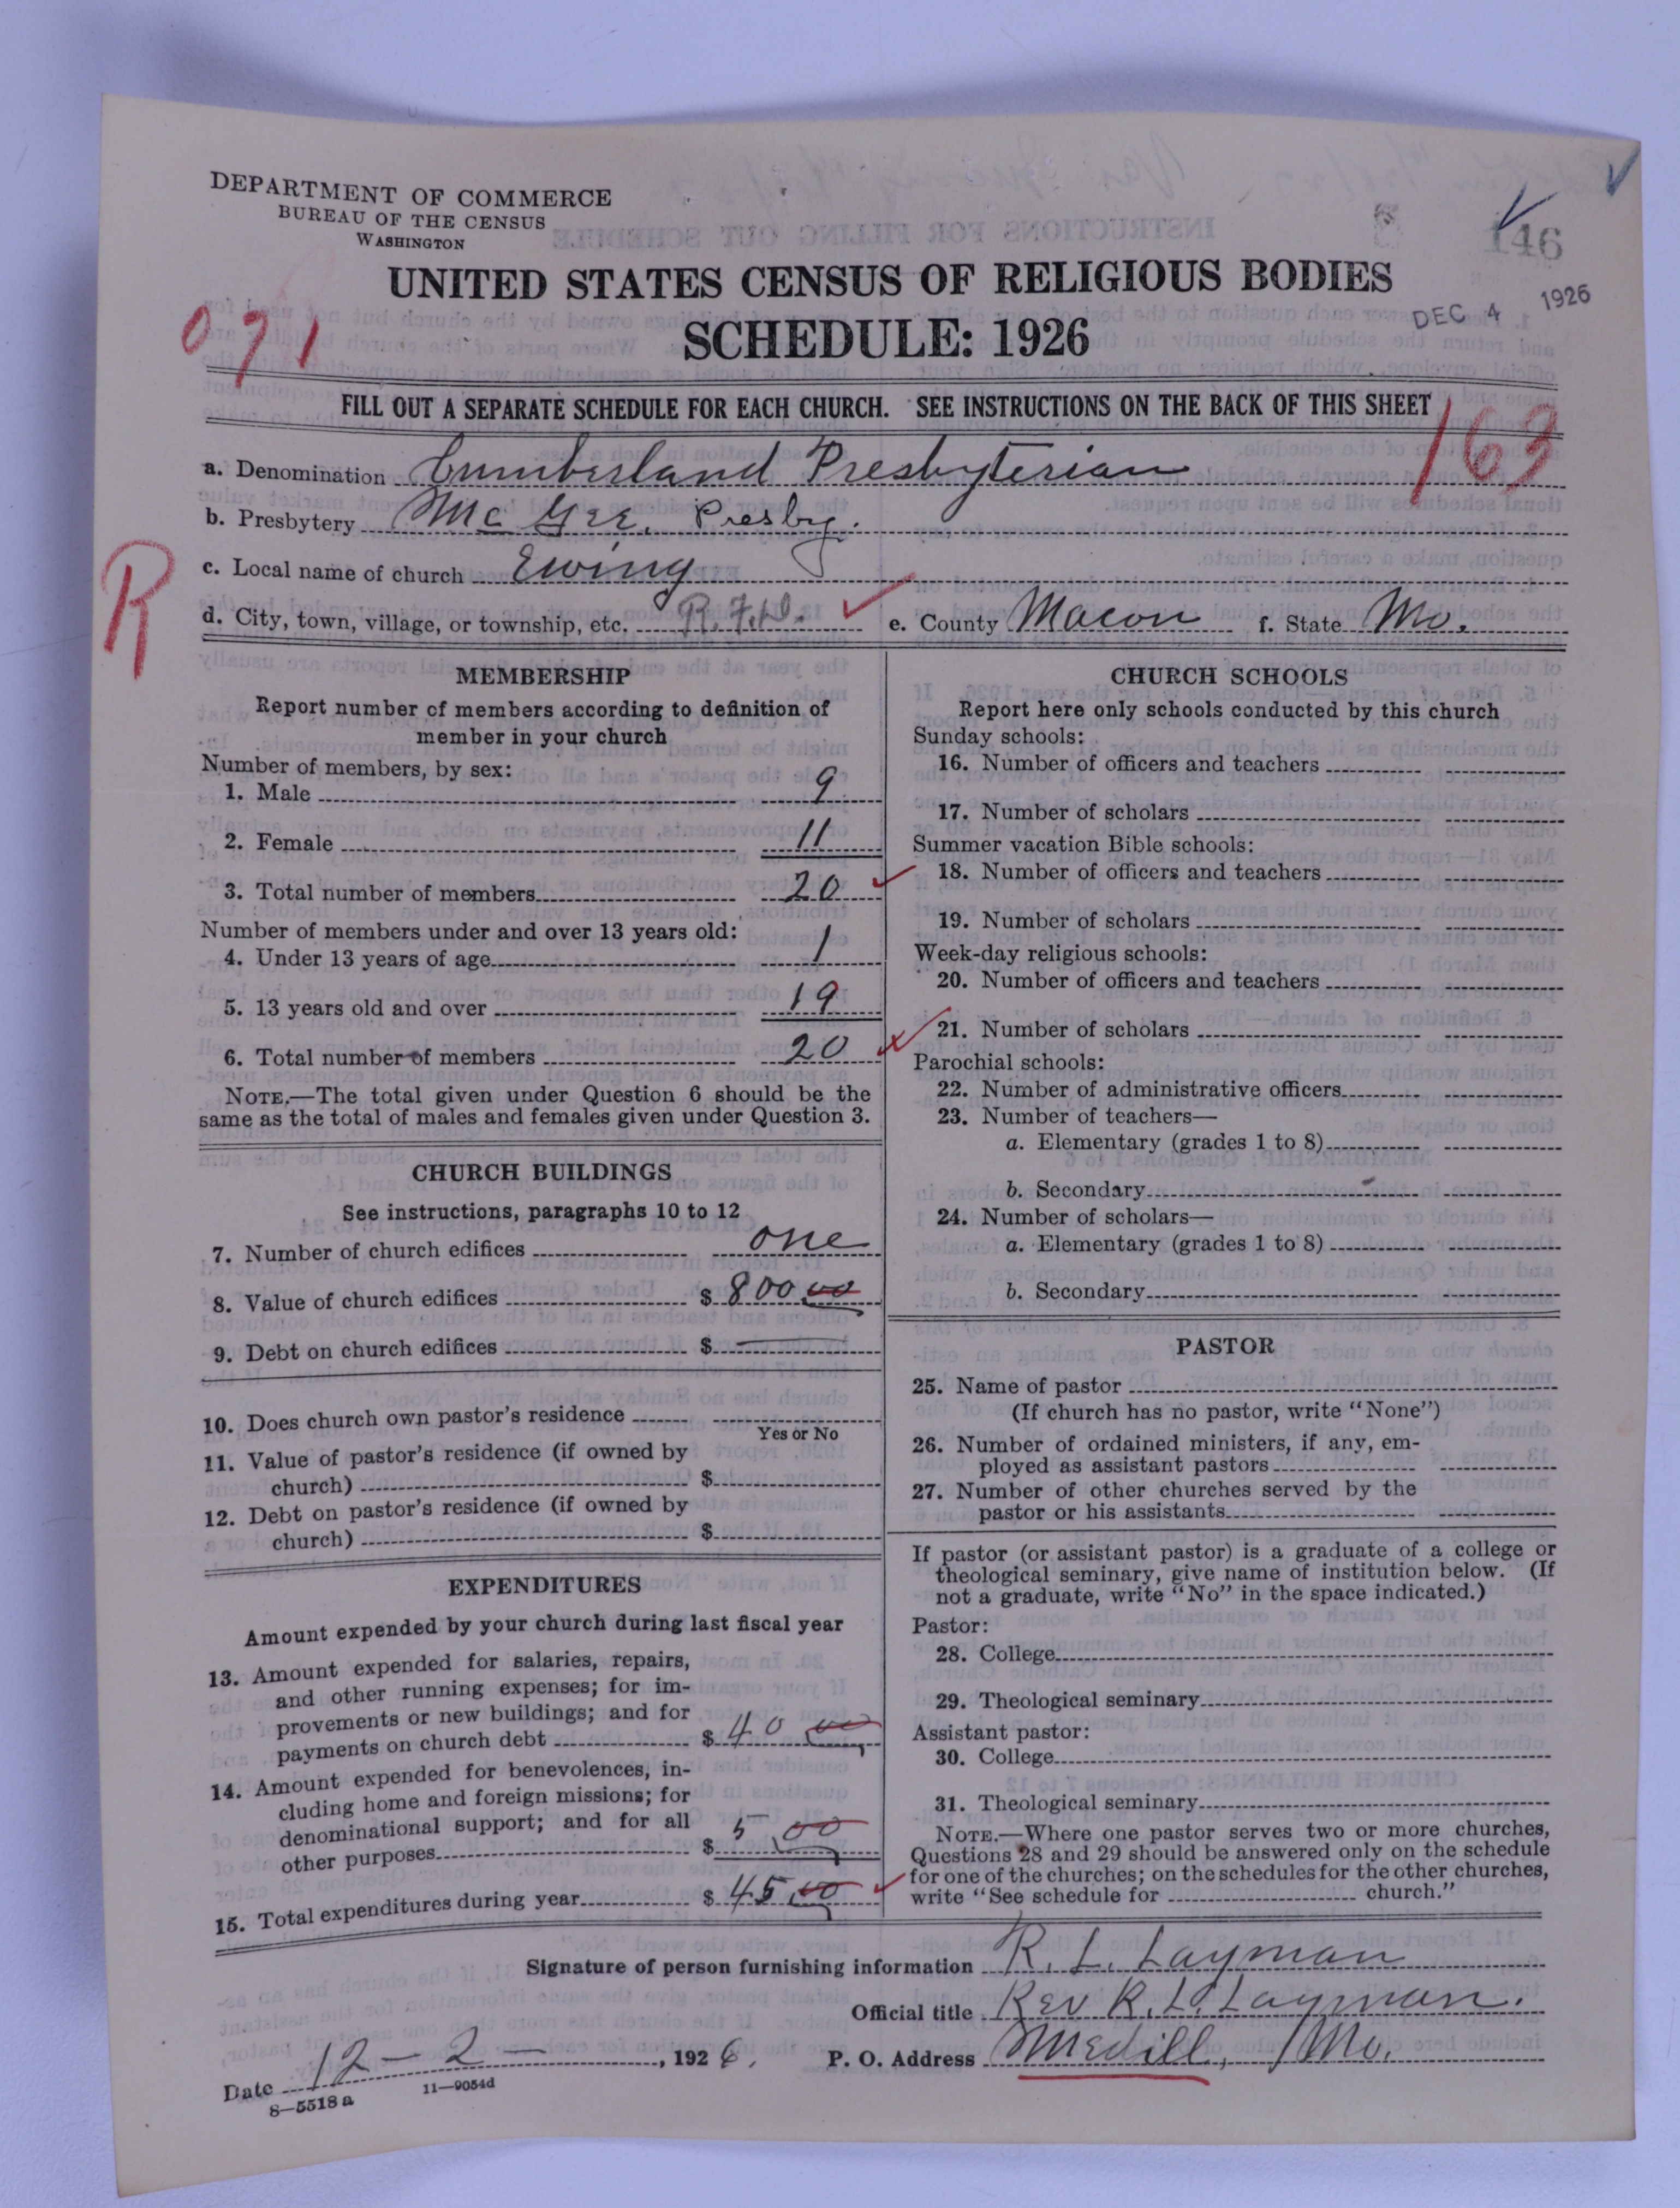 DEPARTMENT OF COMMERCE
BUREAU OF THE CENSUS
WASHINGTON
146
UNITED STATES CENSUS OF RELIGIOUS BODIES
SCHEDULE: 1926
DEC 4 1926
091
FILL OUT A SEPARATE SCHEDULE FOR EACH CHURCH. SEE INSTRUCTIONS ON THE BACK OF THIS SHEET
163
a. Denomination Cumberland Presbyterian
b. Presbytery McGee Presby.
c. Local name of church Ewing
R
d. City, town, village, or township, etc. R.F.D. e. County Macon f. State Mo.
MEMBERSHIP
Report number of members according to definition of
member in your church
Number of members, by sex:
1. Male 9
2. Female 11
3. Total number of members 20
Number of members under and over 13 years old:
4. Under 13 years of age 1
5. 13 years old and over 19
6. Total number of members 20
NOTE.—The total given under Question 6 should be the
same as the total of males and females given under Question 3.
CHURCH BUILDINGS
See instructions, paragraphs 10 to 12
7. Number of church edifices one
8. Value of church edifices $ 800 00
9. Debt on church edifices $ —
10. Does church own pastor's residence
Yes or No
11. Value of pastor's residence (if owned by
church) $
12. Debt on pastor's residence (if owned by
church) $
EXPENDITURES
Amount expended by your church during last fiscal year
13. Amount expended for salaries, repairs,
and other running expenses; for im-
provements or new buildings; and for
payments on church debt $ 40 00
14. Amount expended for benevolences, in-
cluding home and foreign missions; for
denominational support; and for all
other purposes $ 5 00
15. Total expenditures during year $ 45 00
CHURCH SCHOOLS
Report here only schools conducted by this church
Sunday schools:
16. Number of officers and teachers
17. Number of scholars
Summer vacation Bible schools:
18. Number of officers and teachers
19. Number of scholars
Week-day religious schools:
20. Number of officers and teachers
21. Number of scholars
Parochial schools:
22. Number of administrative officers
23. Number of teachers—
a. Elementary (grades 1 to 8)
b. Secondary
24. Number of scholars—
a. Elementary (grades 1 to 8)
b. Secondary
PASTOR
25. Name of pastor
(If church has no pastor, write "None")
26. Number of ordained ministers, if any, em-
ployed as assistant pastors
27. Number of other churches served by the
pastor or his assistants
If pastor (or assistant pastor) is a graduate of a college or
theological seminary, give name of institution below. (If
not a graduate, write "No" in the space indicated.)
Pastor:
28. College
29. Theological seminary
Assistant pastor:
30. College
31. Theological seminary
NOTE.—Where one pastor serves two or more churches,
Questions 28 and 29 should be answered only on the schedule
for one of the churches; on the schedules for the other churches,
write "See schedule for church."
Signature of person furnishing information R. L. Layman
Official title Rev R. L. Layman.
Date 12 - 2 -, 1926. P. O. Address Medill, Mo.
8—5518 a 11—9054d